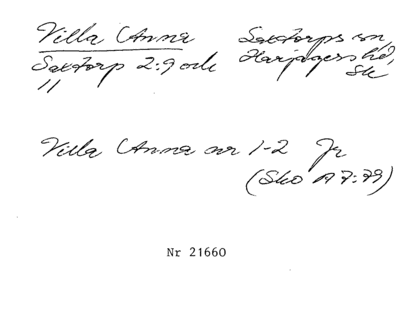 Villa Anna Saxtorps sn,
Saxtorp 2:9 och Harjagers hd,
11 Sk
Villa Anna nr 1-2 Jr
(Sko A 7:79)
Nr 21660